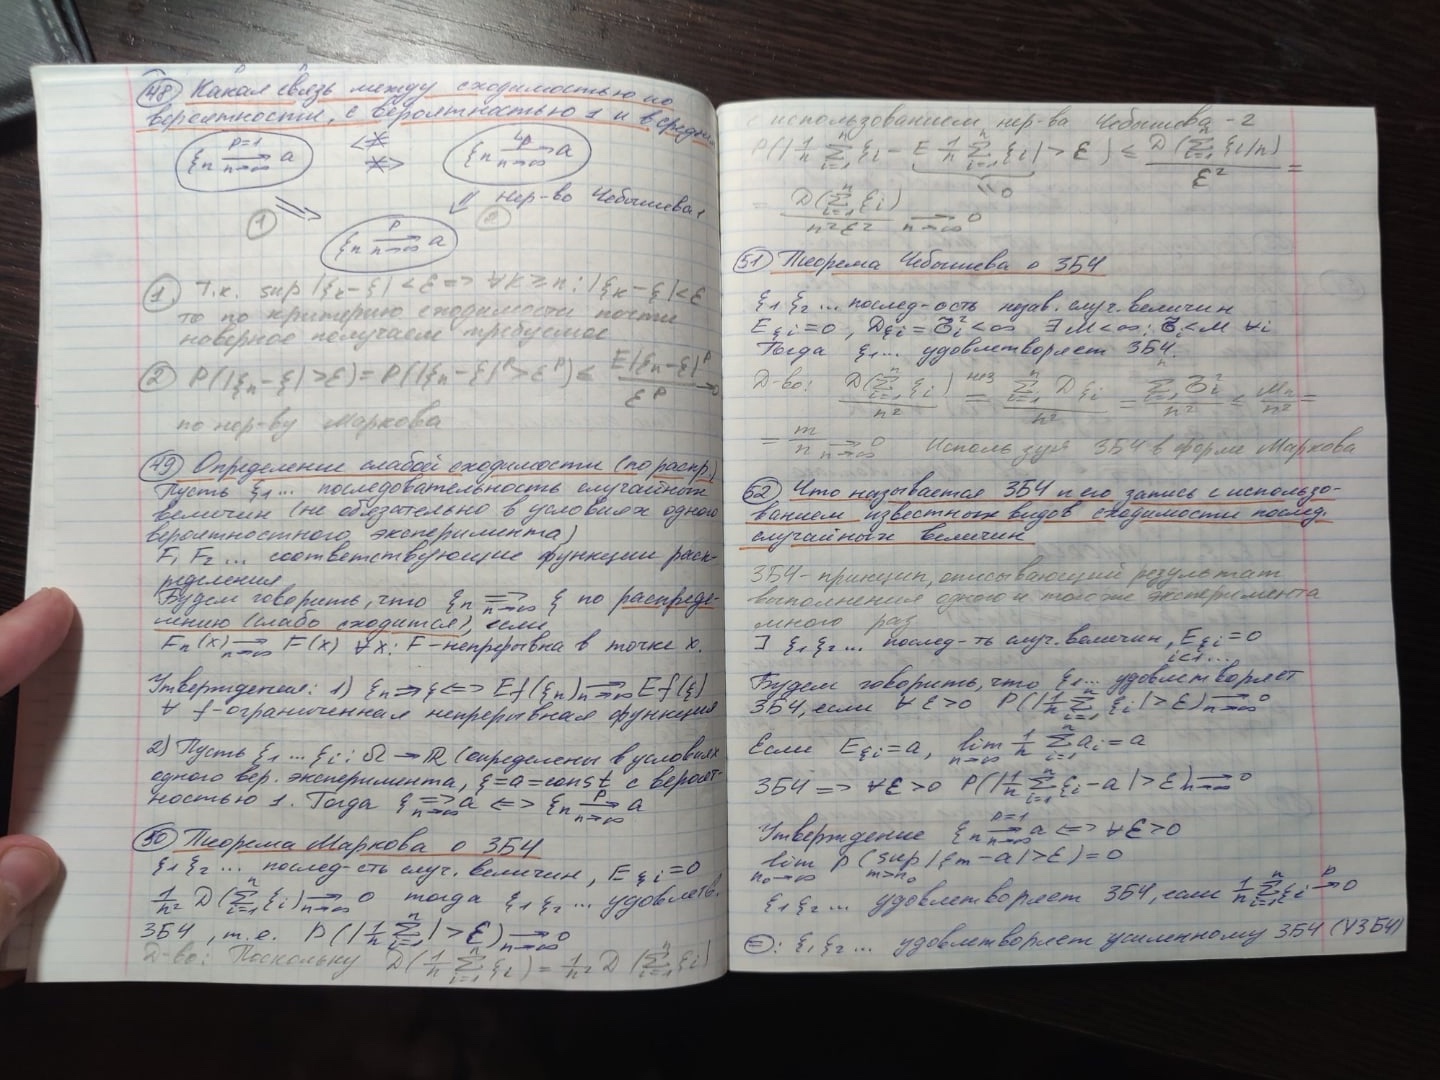 48 Какая связь между сходимостью по
вероятности, с вероятностью 1 и в среднем
ξn P=1 → n→∞ a
ξn Lp → n→∞ a
нер-во Чебышева 1
1
2
ξn P → n→∞ a
1. Т.к. sup |ξk-ξ| < ε => ∀k ≥ n: |ξk-ξ| < ε
то по критерию сходимости почти
наверное получаем требуемое
2 P(|ξn-ξ|>ε) = P(|ξn-ξ|^P > ε^P) ≤ E|ξn-ξ|^P / ε^P → 0
по нер-ву Маркова
49 Определение слабой сходимости (по распр.)
Пусть ξ1 ... последовательность случайных
величин (не обязательно в условиях одного
вероятностного эксперимента)
F1 F2 ... соответствующие функции расп-
ределения
Будем говорить, что ξn => n→∞ ξ по распреде-
лению (слабо сходится), если
Fn(x) → n→∞ F(x) ∀x: F-непрерывна в точке x.
Утверждения: 1) ξn => ξ <=> Ef(ξn) → n→∞ Ef(ξ)
∀ f-ограниченная непрерывная функция
2) Пусть ξ1 ... ξi: Ω → R (определены в условиях
одного вер. эксперимента, ξ=a=const с вероят-
ностью 1. Тогда ξ => n→∞ a <=> ξn P → n→∞ a
50 Теорема Маркова о ЗБЧ
ξ1 ξ2 ... послед-сть случ. величин, Eξi=0
1/n² D(∑ i=1 n ξi) → n→∞ 0 тогда ξ1 ξ2 ... удовлетв.
ЗБЧ, т.е. P(|1/n ∑ i=1 n| > ε) → n→∞ 0
Д-во: Поскольку D(1/n ∑ i=1 n ξi) = 1/n² D(∑ i=1 n ξi)
с использованием нер-ва Чебышева - 2
P(|1/n ∑ i=1 n ξi - E 1/n ∑ i=1 n ξi| > ε) ≤ D(∑ i=1 n ξi/n) / ε² =
0
= D(∑ i=1 n ξi) / n²ε² → n→∞ 0
51 Теорема Чебышева о ЗБЧ
ξ1 ξ2 ... послед-ость незав. случ. величин
Eξi=0, Dξi=σi²<∞ ∃ M<∞: σi<M ∀i
Тогда ξ1... удовлетворяет ЗБЧ.
Д-во: D(∑ i=1 n ξi) / n² нез = ∑ i=1 n Dξi / n² = ∑ i=1 n σi² / n² ≤ Mn / n² =
= m / n → n→∞ 0 Используя ЗБЧ в форме Маркова
52 Что называется ЗБЧ и его запись с использо-
ванием известных видов сходимости послед.
случайных величин
ЗБЧ - принцип, описывающий результат
выполнения одного и того же эксперимента
много раз
] ξ1 ξ2 ... послед-ть случ. величин, Eξi=0
i<1...
Будем говорить, что ξ1... удовлетворяет
ЗБЧ, если ∀ε>0 P(|1/n ∑ i=1 n ξi| > ε) → n→∞ 0
Если Eξi=a, lim n→∞ 1/n ∑ i=1 n ai = a
ЗБЧ => ∀ε>0 P(|1/n ∑ i=1 n ξi - a| > ε) → n→∞ 0
Утверждение ξn P=1 → n→∞ a <=> ∀ε>0
lim n0→∞ P(sup m>n0 |ξm-a|>ε)=0
ξ1 ξ2 ... удовлетворяет ЗБЧ, если 1/n ∑ i=1 n ξi P → 0
=: ξ1 ξ2 ... удовлетворяет усиленному ЗБЧ (УЗБЧ)